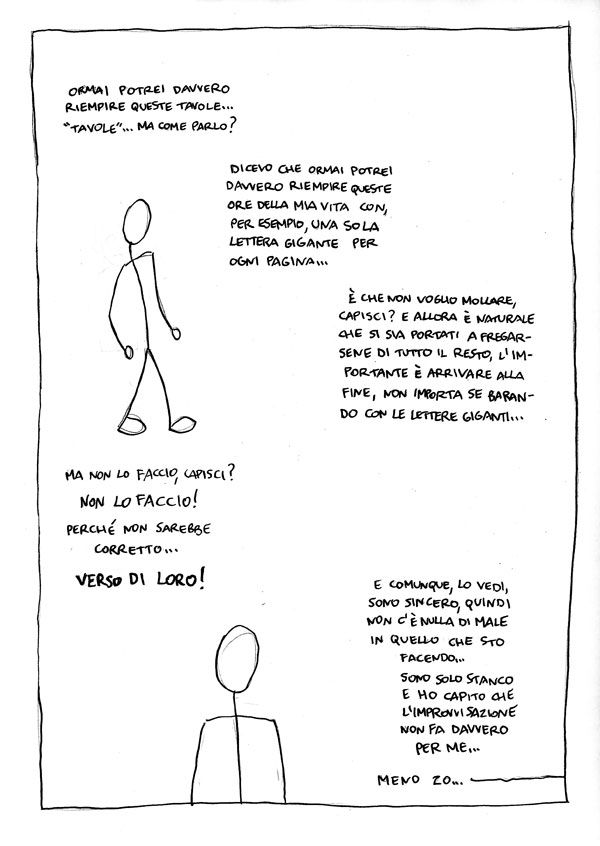 ORMAI POTREI DAVVERO
RIEMPIRE QUESTE TAVOLE...
"TAVOLE"... MA COME PARLO?
DICEVO CHE ORMAI POTREI
DAVVERO RIEMPIRE QUESTE
ORE DELLA MIA VITA CON,
PER ESEMPIO, UNA SOLA
LETTERA GIGANTE PER
OGNI PAGINA...
È CHE NON VOGLIO MOLLARE,
CAPISCI? E ALLORA È NATURALE
CHE SI SIA PORTATI A FREGAR-
SENE DI TUTTO IL RESTO, L'IM-
PORTANTE È ARRIVARE ALLA
FINE, NON IMPORTA SE BARAN-
DO CON LE LETTERE GIGANTI...
MA NON LO FACCIO, CAPISCI?
NON LO FACCIO!
PERCHÉ NON SAREBBE
CORRETTO...
VERSO DI LORO!
E COMUNQUE, LO VEDI,
SONO SINCERO, QUINDI
NON C'È NULLA DI MALE
IN QUELLO CHE STO
FACENDO...
SONO SOLO STANCO
E HO CAPITO CHE
L'IMPROVVISAZIONE
NON FA DAVVERO
PER ME...
MENO 20...